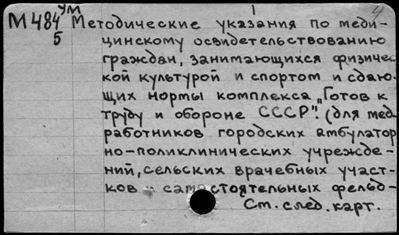 УМ
М484 Методические указания по меди-
5 цинскому освидетельствованию
граждан, занимающихся физичес-
кой культурой и спортом и сдаю-
щих нормы комплекса „Готов к
труду и обороне СССР". (для мед.
работников городских амбулатор-
но-поликлинических учрежде-
ний, сельских врачебных участ-
ков и самостоятельных фельд-
См. след. карт.